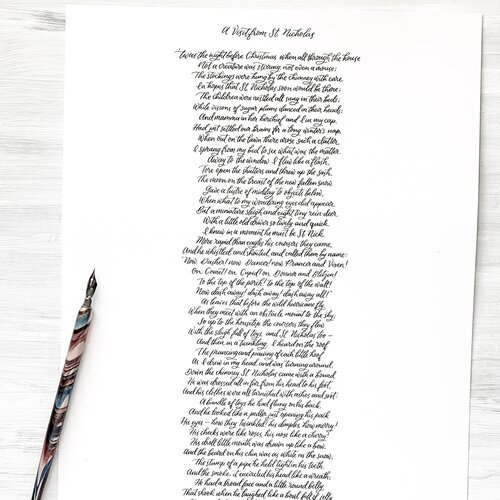 A Visit from St Nicholas
'twas the night before Christmas when all through the house
Not a creature was stirring, not even a mouse;
The stockings were hung by the chimney with care
In hopes that St. Nicholas soon would be there;
The children were nestled all snug in their beds;
While visions of sugar plums danced in their heads;
And mamma in her kerchief and I in my cap,
Had just settled our brains for a long winter's nap,
When out on the lawn there arose such a clatter,
I sprang from my bed to see what was the matter.
Away to the window I flew like a flash,
Tore open the shutters and threw up the sash,
The moon on the breast of the new fallen snow
Gave a lustre of midday to objects below,
When what to my wondering eyes did appear,
But a miniature sleigh and eight tiny rein deer
With a little old driver so lively and quick
I knew in a moment he must be St Nick.
More rapid than eagles his coursers they came,
And he whistled and shouted, and called them by name:
"Now, Dasher! now Dancer! now Prancer and Vixen!
On, Comet! on, Cupid! on Donner and Blitzen!
To the top of the porch! to the top of the wall!
Now dash away! dash away! dash away all!"
As leaves that before the wild hurricane fly
When they meet with an obstacle, mount to the sky;
So up to the housetop the coursers they flew
With the sleigh full of toys, and St Nicholas too—
And then in a twinkling, I heard on the roof
The prancing and pawing of each little hoof
As I drew in my head and was turning around,
Down the chimney St Nicholas came with a bound.
He was dressed all in fur, from his head to his foot,
And his clothes were all tarnished with ashes and soot;
A bundle of toys he had flung on his back,
And he looked like a pedler just opening his pack.
His eyes—how they twinkled! his dimples, how merry!
His cheeks were like roses, his nose like a cherry!
His droll little mouth was drawn up like a bow,
And the beard on his chin was as white as the snow;
The stump of a pipe he held tight in his teeth,
And the smoke, it encircled his head like a wreath;
He had a broad face and a little round belly
That shook when he laughed, like a bowl full of jelly